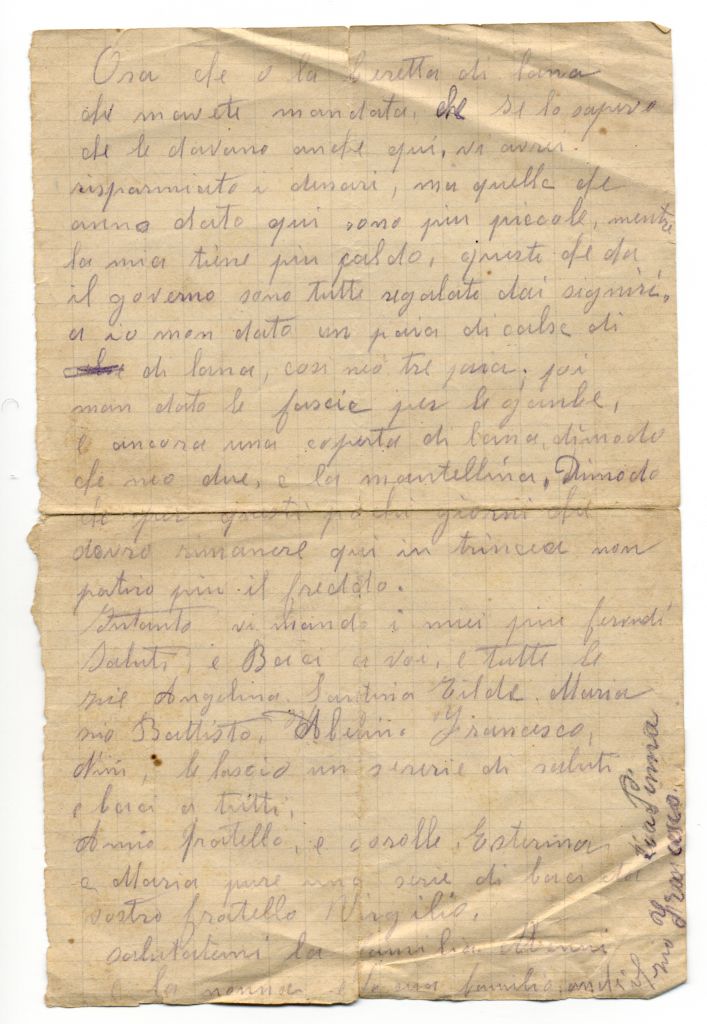 Ora che o la beretta di lana
che mavete mandata, che se lo sapevo
che le davano anche qui, vi avrei
risparmiato i denari, ma quelle che
anno dato qui sono piu piccole, mentre
la mia tiene piu caldo, queste che da
il governo sono tutte regalate dai signiri,
a io man dato un paia di calse di
di lana, cosi neo tre paia, poi
man dato le fascie per le ganbe,
e ancora una coperta di lana, dimodo
che neo due, e la mantellina, Dimodo
che per questi pochi giorni che
dovro rimanere qui in trincea non
patiro piu il freddo.
Intanto vi mando i miei piu
Saluti, e Baci a voi, e tutte le
zie Angelina Santina Tilde Maria
zio Battista, Francesco,
Nini, le lascio un sererie di saluti
e baci a tutti,
A mio fratello, e sorelle Esterina
e Maria pure una serie di baci da
vostro fratello Virgilio,
salutatemi la familia
e la nonna e la sua familia, anche
zio Francesco